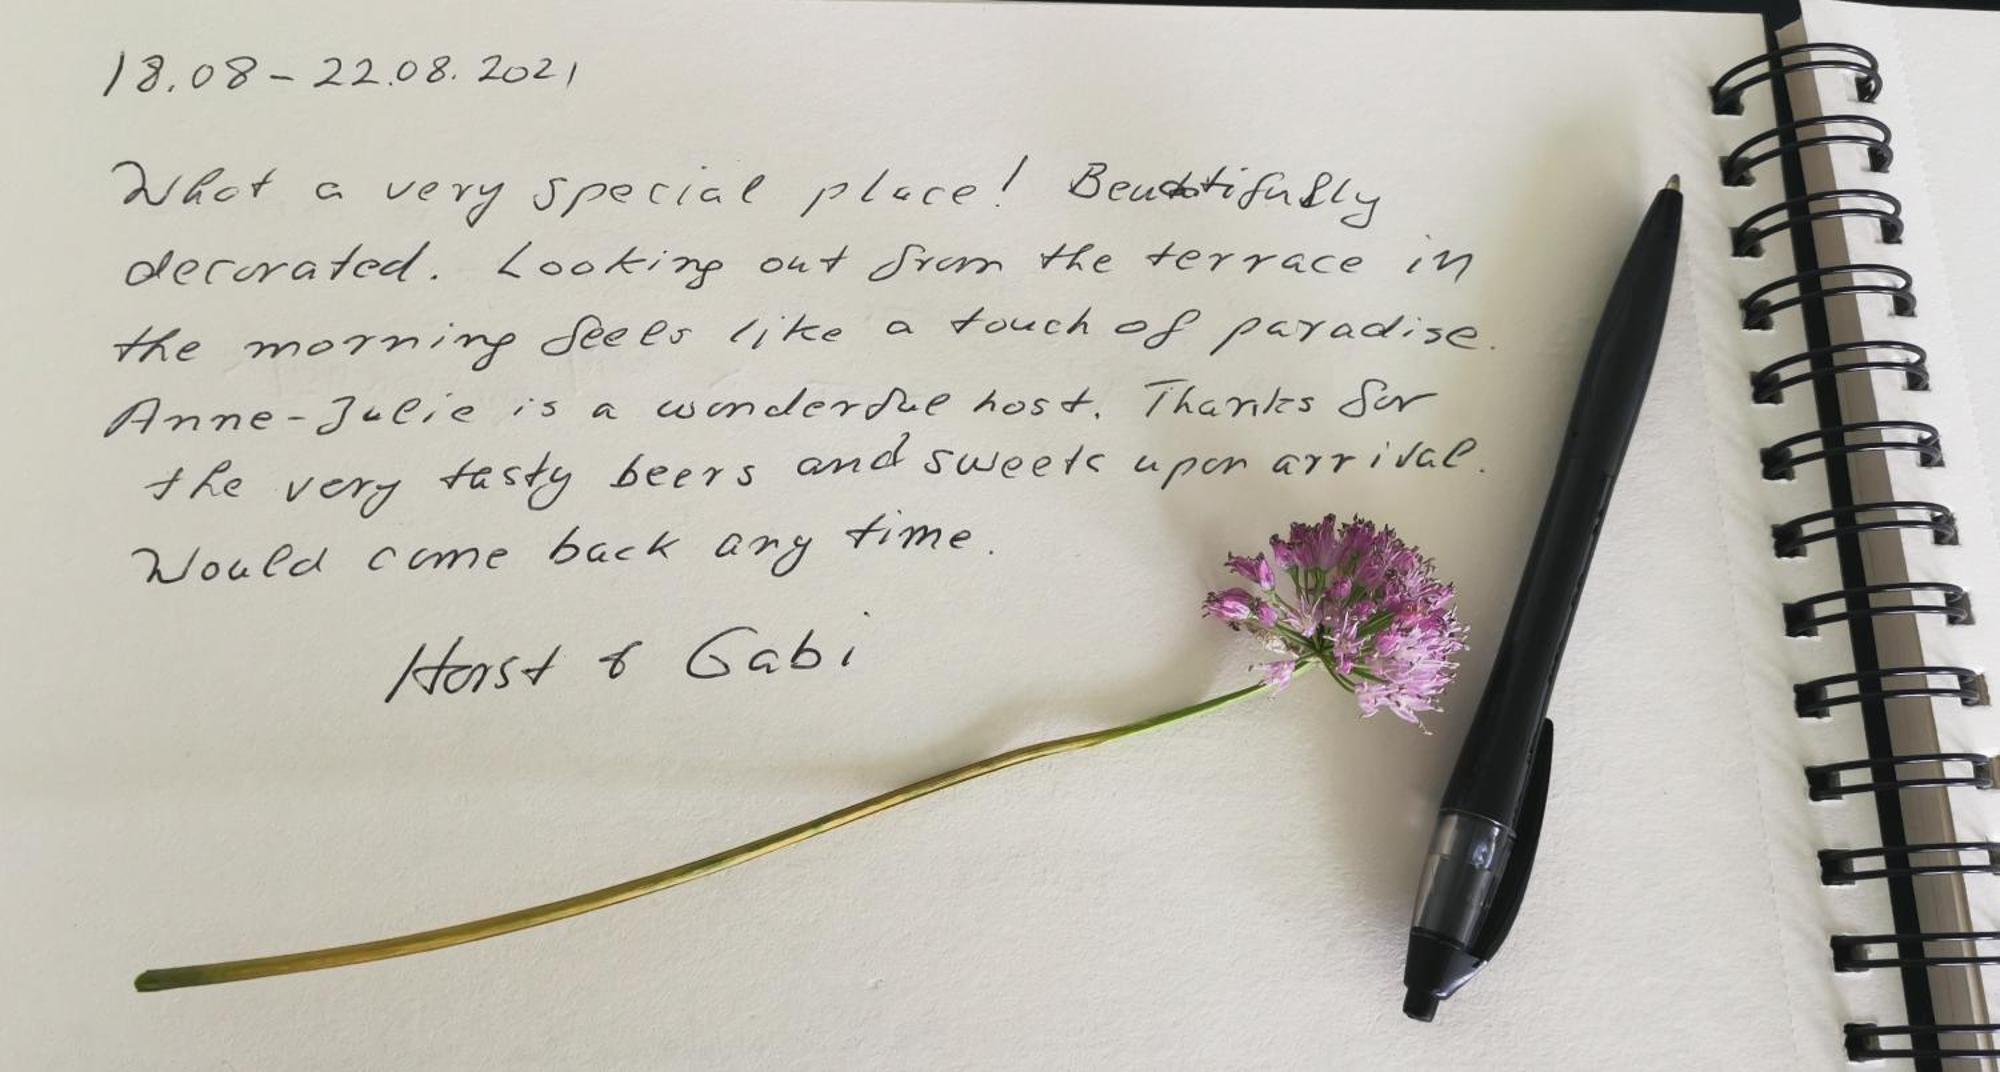 18.08 - 22.08.2021
What a very special place! Beautifully
decorated. Looking out from the terrace in
the morning feels like a touch of paradise.
Anne-Julie is a wonderful host. Thanks for
the very tasty beers and sweets upon arrival.
Would come back any time.
Horst & Gabi